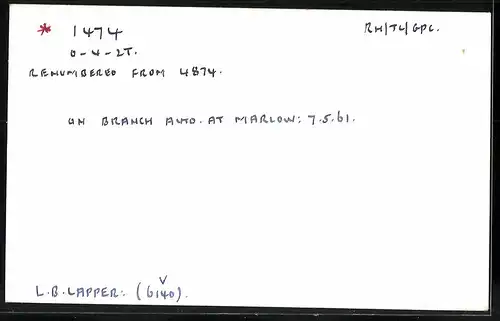 * 1474 RH/TL/GPC.
0-4-2T.
RENUMBERED FROM 4874.
ON BRANCH AUTO. AT MARLOW: 7.5.61.
V
L.B.LAPPER: (6140).